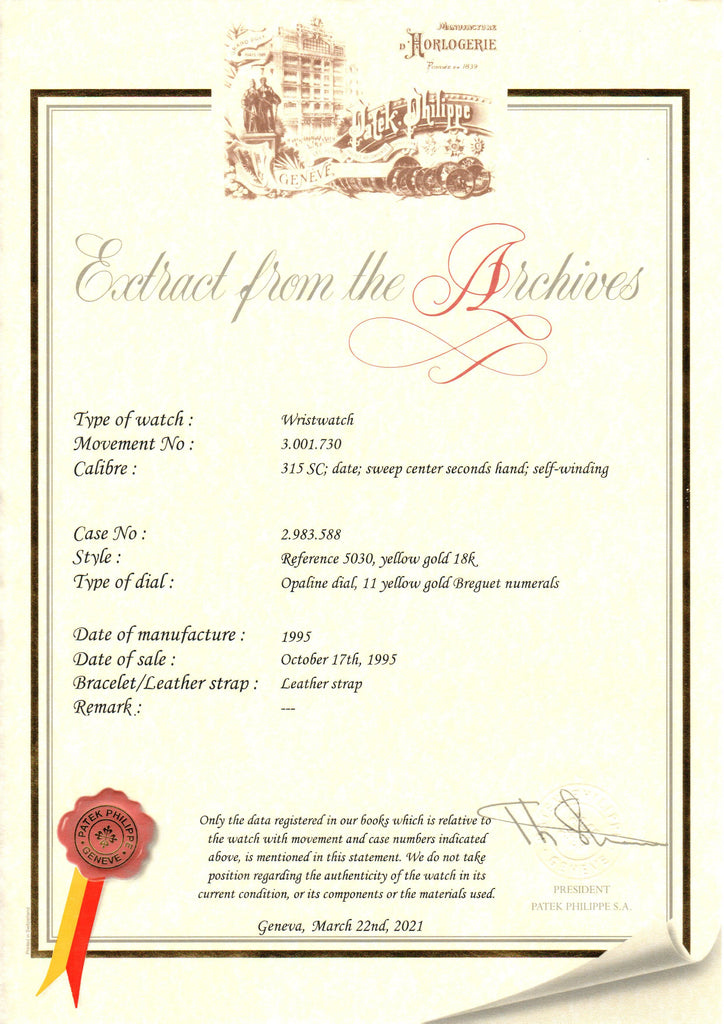 MANUFACTURE
D'HORLOGERIE
FONDÉE EN 1839
Patek, Philippe
GENÈVE
Extract from the Archives
Type of watch : Wristwatch
Movement No : 3.001.730
Calibre : 315 SC; date; sweep center seconds hand; self-winding
Case No : 2.983.588
Style : Reference 5030, yellow gold 18k
Type of dial : Opaline dial, 11 yellow gold Breguet numerals
Date of manufacture : 1995
Date of sale : October 17th, 1995
Bracelet/Leather strap : Leather strap
Remark : ---
PATEK PHILIPPE
GENEVE
Only the data registered in our books which is relative to
the watch with movement and case numbers indicated
above, is mentioned in this statement. We do not take
position regarding the authenticity of the watch in its
current condition, or its components or the materials used.
Geneva, March 22nd, 2021
PRESIDENT
PATEK PHILIPPE S.A.
Printed in Switzerland